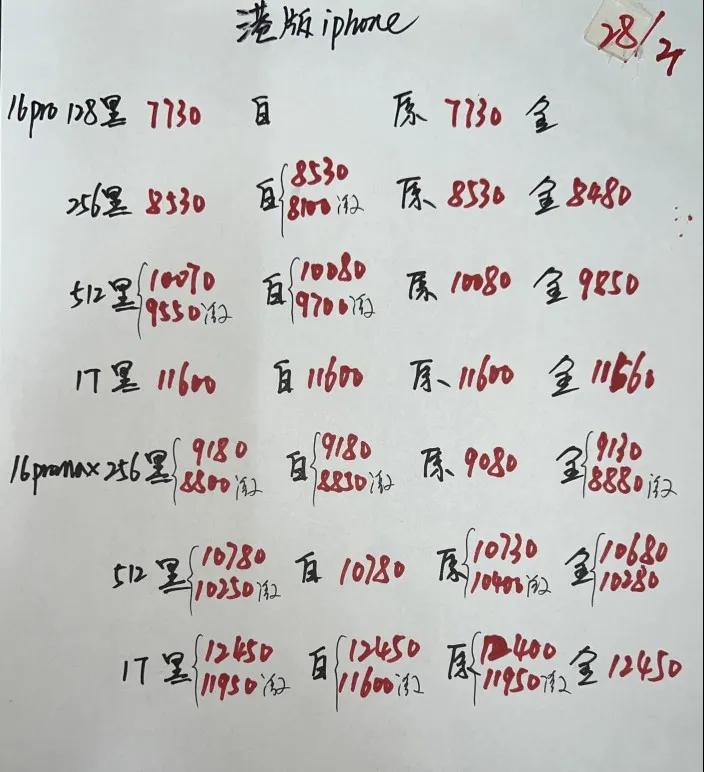 港版iphone 28/4
16pro 128黑 7730 白 原 7730 金
256黑 8530 白{8530 8100激 原 8530 金 8480
512黑{10070 9550激 白{10080 9700激 原 10080 金 9850
1T黑 11600 白 11600 原 11600 金 11560
16promax 256黑{9180 8800激 白{9180 8830激 原 9080 金{9130 8880激
512黑{10780 10250激 白 10780 原{10730 10400激 金{10680 10280
1T黑{12450 11950激 白{12450 11600激 原{12400 11950激 金 12450